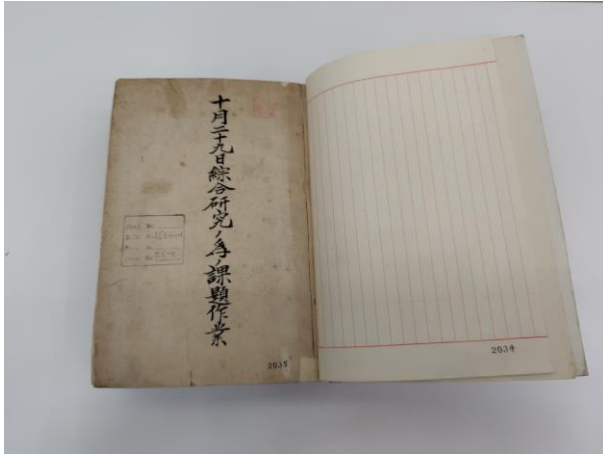 十月二十九日綜合研究ノ為ノ課題作業
2935
2934